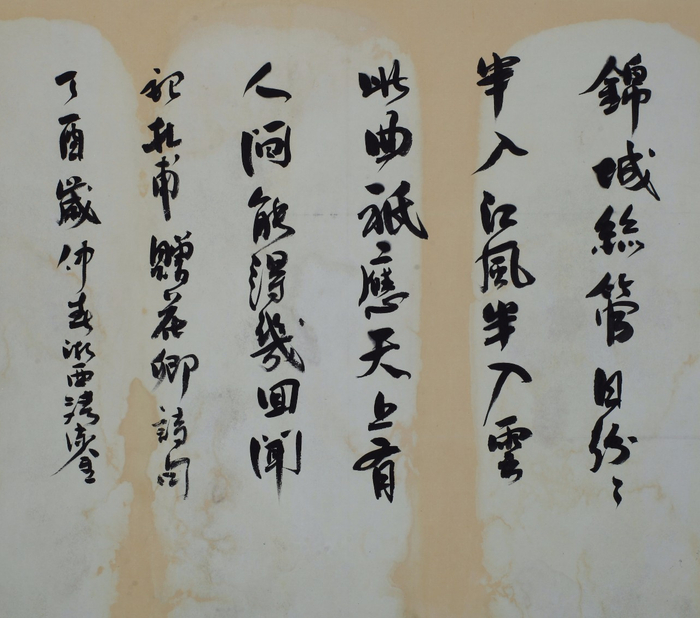 錦城絲管日紛〻
半入江風半入雲
此曲祗應天上有
人間能得幾回聞
記杜甫贈花卿詩句
丁酉歲仲春浙西